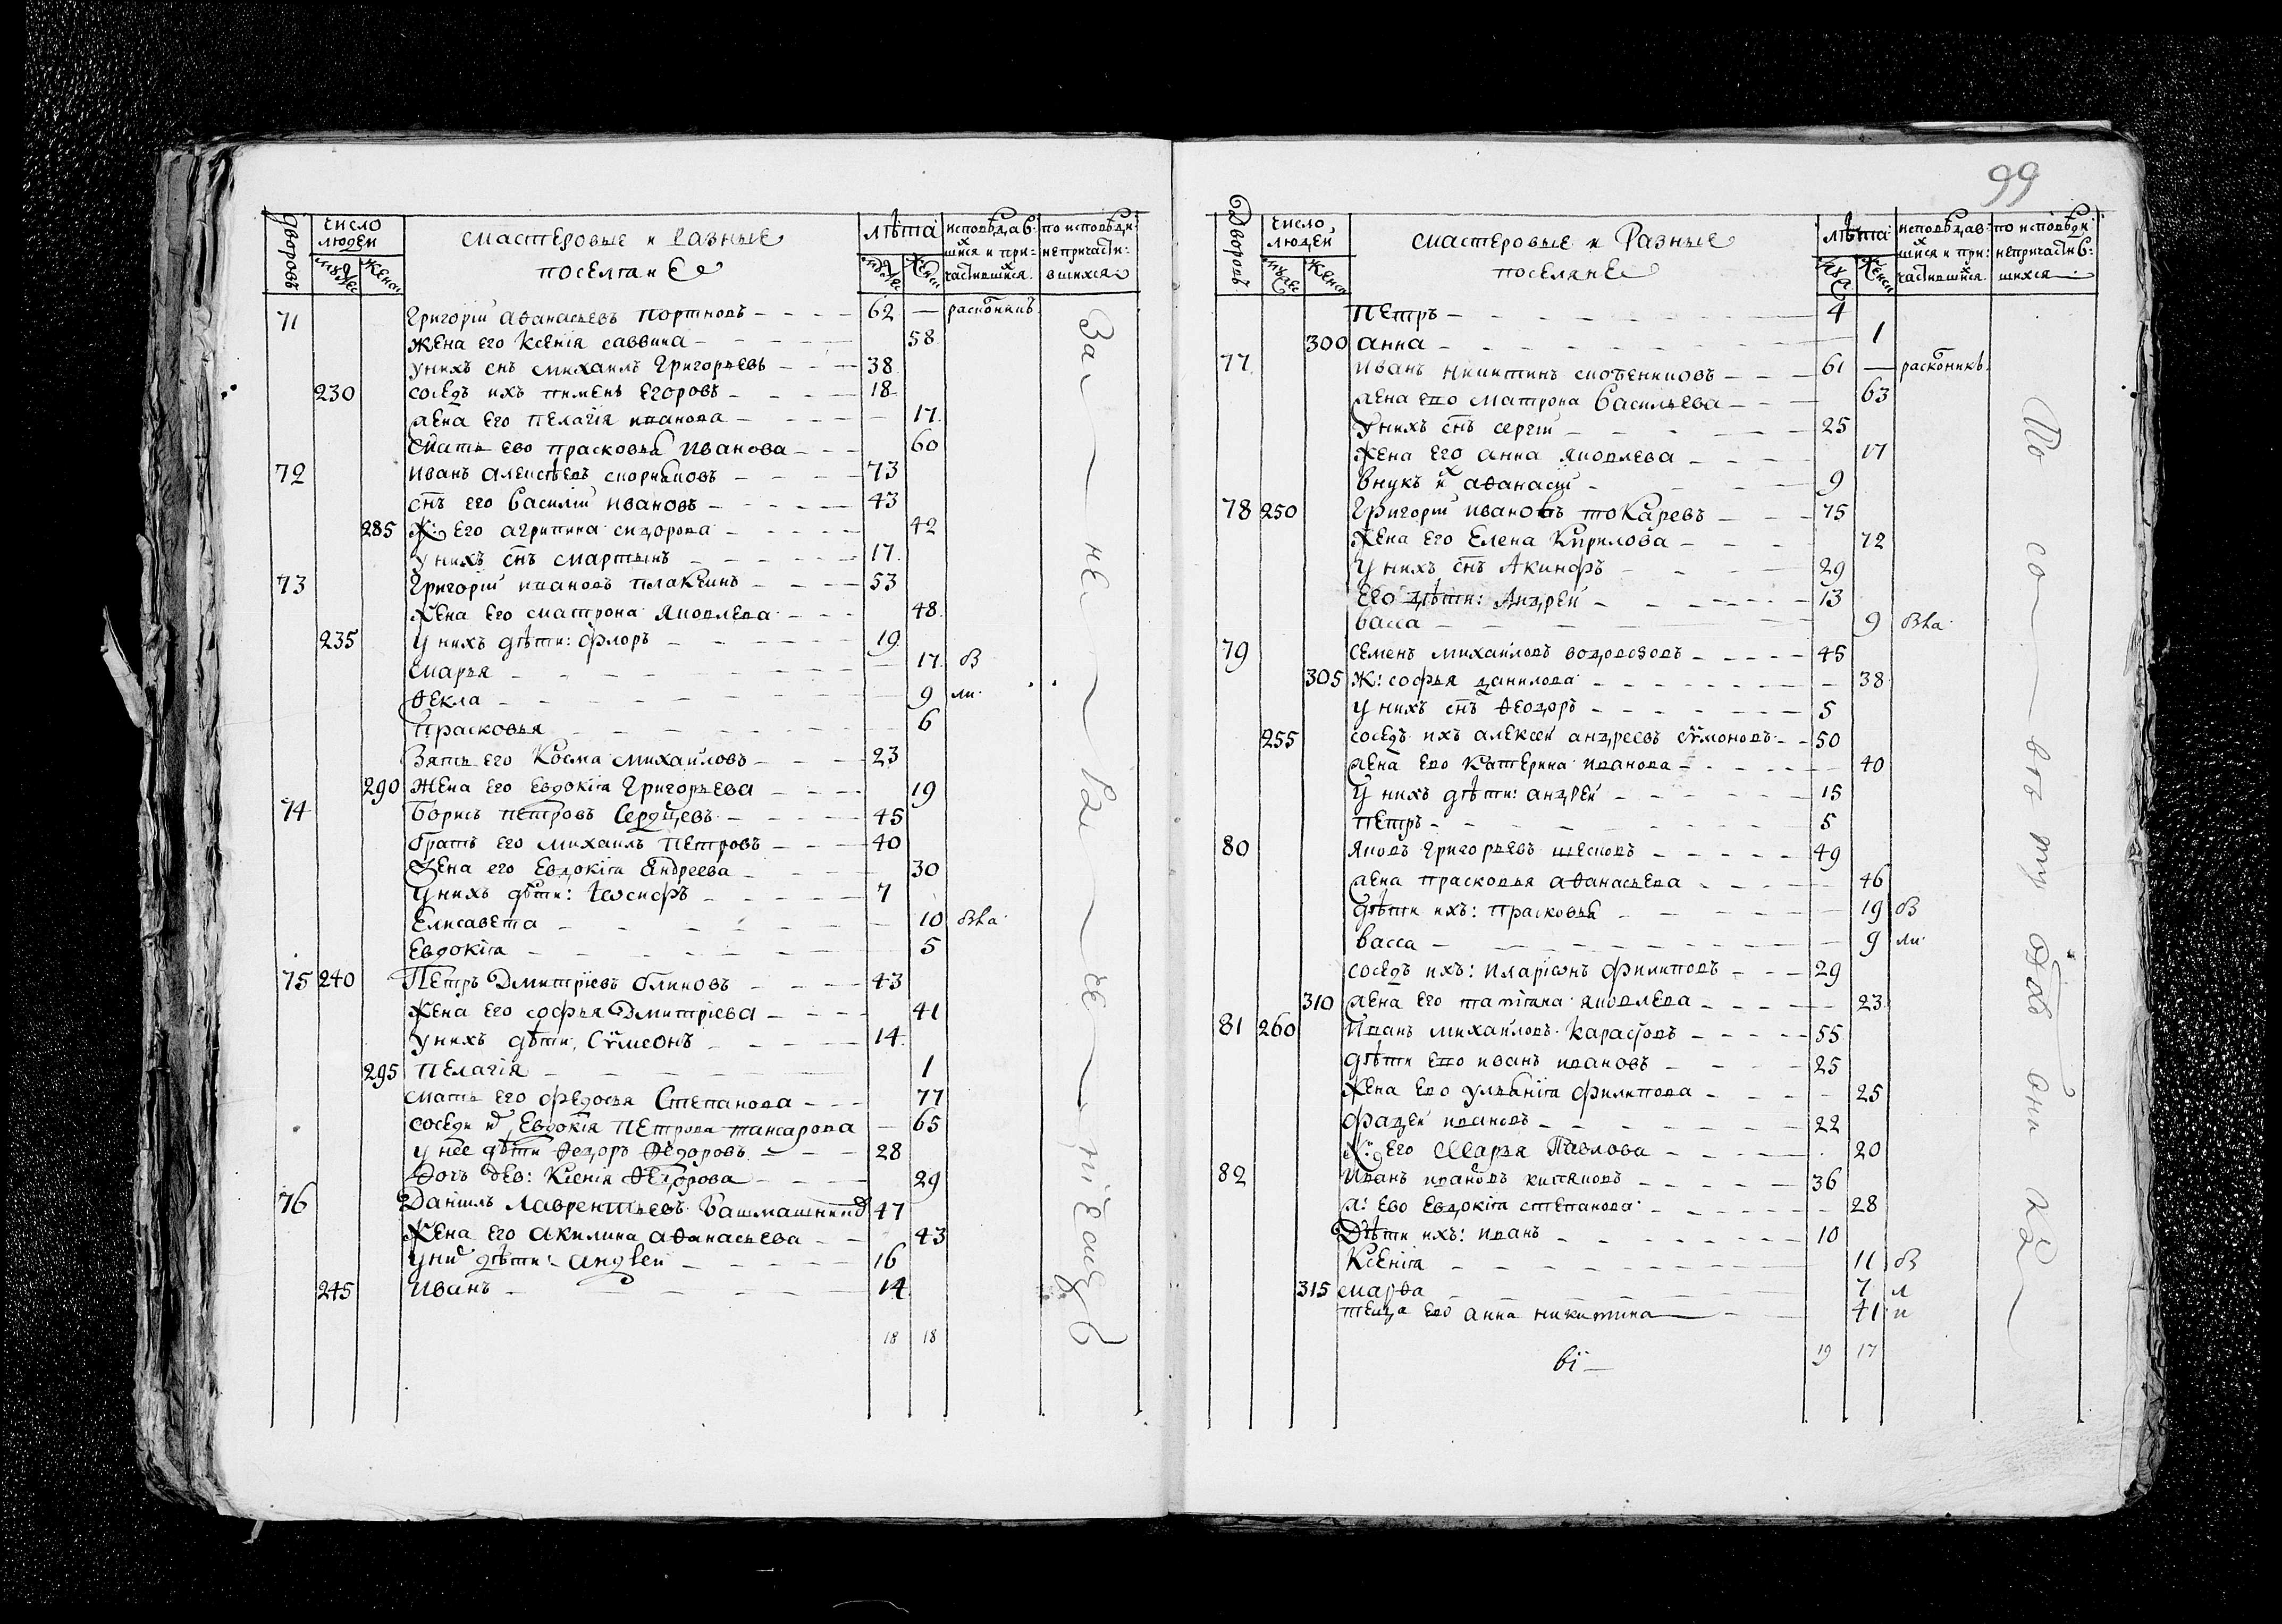 дворовъ
число людей
мужес
женск
мастеровые и разные
поселяне
лѣта
исповѣдавшихся и причастившихся
по исповѣди непричастившихся
71 Григорiй Аѳанасьевъ Портновъ 62 — расколникъ
жена его Ксенiя Саввина 58
у нихъ снъ Михаилъ Григорьевъ 38
230 соседъ ихъ Пименъ Егоровъ 18
жена его Пелагiя Иванова 17
мать ево Прасковья Иванова 60
72 Иванъ Алексѣевъ 73
снъ его Василiй Ивановъ 43
285 ж: его Агрипина Сидорова 42
у нихъ снъ Мартынъ 17
73 Григорiй Ивановъ Плаксинъ 53
жена его Матрона Яковлева 48
235 у нихъ дѣти: Флоръ 19
Марья 17 в
Ѳекла 9 ли
Прасковья 6
Зять его Косма Михаиловъ 23
290 жена его Евдокiя Григорьева 19
74 Борисъ Петровъ Сердцевъ 45
братъ его Михаилъ Петровъ 40
жена его Евдокiя Андреева 30
у нихъ дѣти: Iѡсифъ 7
Елисавета 10 вла
Евдокiя 5
75 240 Петръ Дмитрiевъ Блиновъ 43
жена его Софья Дмитрiева 41
у нихъ дѣти, Сѵмеонъ 14
295 Пелагiя 1
мать его Федосья Степанова 77
Евдокiя Петрова 65
у нее дѣти Ѳедоръ Ѳедоровъ 28
дочь дев: Ксенiя Ѳедорова 29
76 Данiилъ Лаврентьевъ Башмашник 47
жена его Акилина Аѳанасьева 43
у них дѣти: Андрей 16
245 Иванъ 14
18 18
За — не
99
Дворовъ
число людей
мужес
женск
мастеровые и Разные
поселяне
лѣта
исповѣдавшихся и причастившихся
по исповѣди непричастившихся
Петръ 4
300 Анна 1
77 Иванъ Никитинъ 61 — расколникъ
жена ево Матрона Васильева 63
у нихъ снъ Сергiй 25
жена его Анна Яковлева 17
внукъ их Аѳанасiй 9
78 250 Григорiй Ивановъ Токаревъ 75
жена его Елена Кирилова 72
у нихъ снъ Акинфъ 29
его дѣти: Андрей 13
Васса 9 вла
79 Семенъ Михаиловъ Водовозовъ 45
305 ж: Софья Данилова 38
у нихъ снъ Ѳеодоръ 5
255 соседъ ихъ Алексей Андреевъ 50
жена ево Катерина Иванова 40
у нихъ дѣти: Андрей 15
Петръ 5
80 Яковъ Григорьевъ 49
жена Прасковья Аѳанасьева 46
дѣти ихъ: Прасковья 19 в
Васса 9 ли
соседъ ихъ: Иларiѡнъ Филиповъ 29
310 жена его Татiана Яковлева 23
81 260 Иванъ Михаиловъ 55
дѣти ево Иванъ Ивановъ 25
жена ево Ульянiя Филипова 25
Фадей Ивановъ 22
ж: его Марья Павлова 20
82 Иванъ Ивановъ 36
ж: ево Евдокiя Степанова 28
Дѣти ихъ: Иванъ 10
Ксенiя 11 в
315 Марѳа 7 л
теща ево Анна Никитина 41 и
вi
19 17